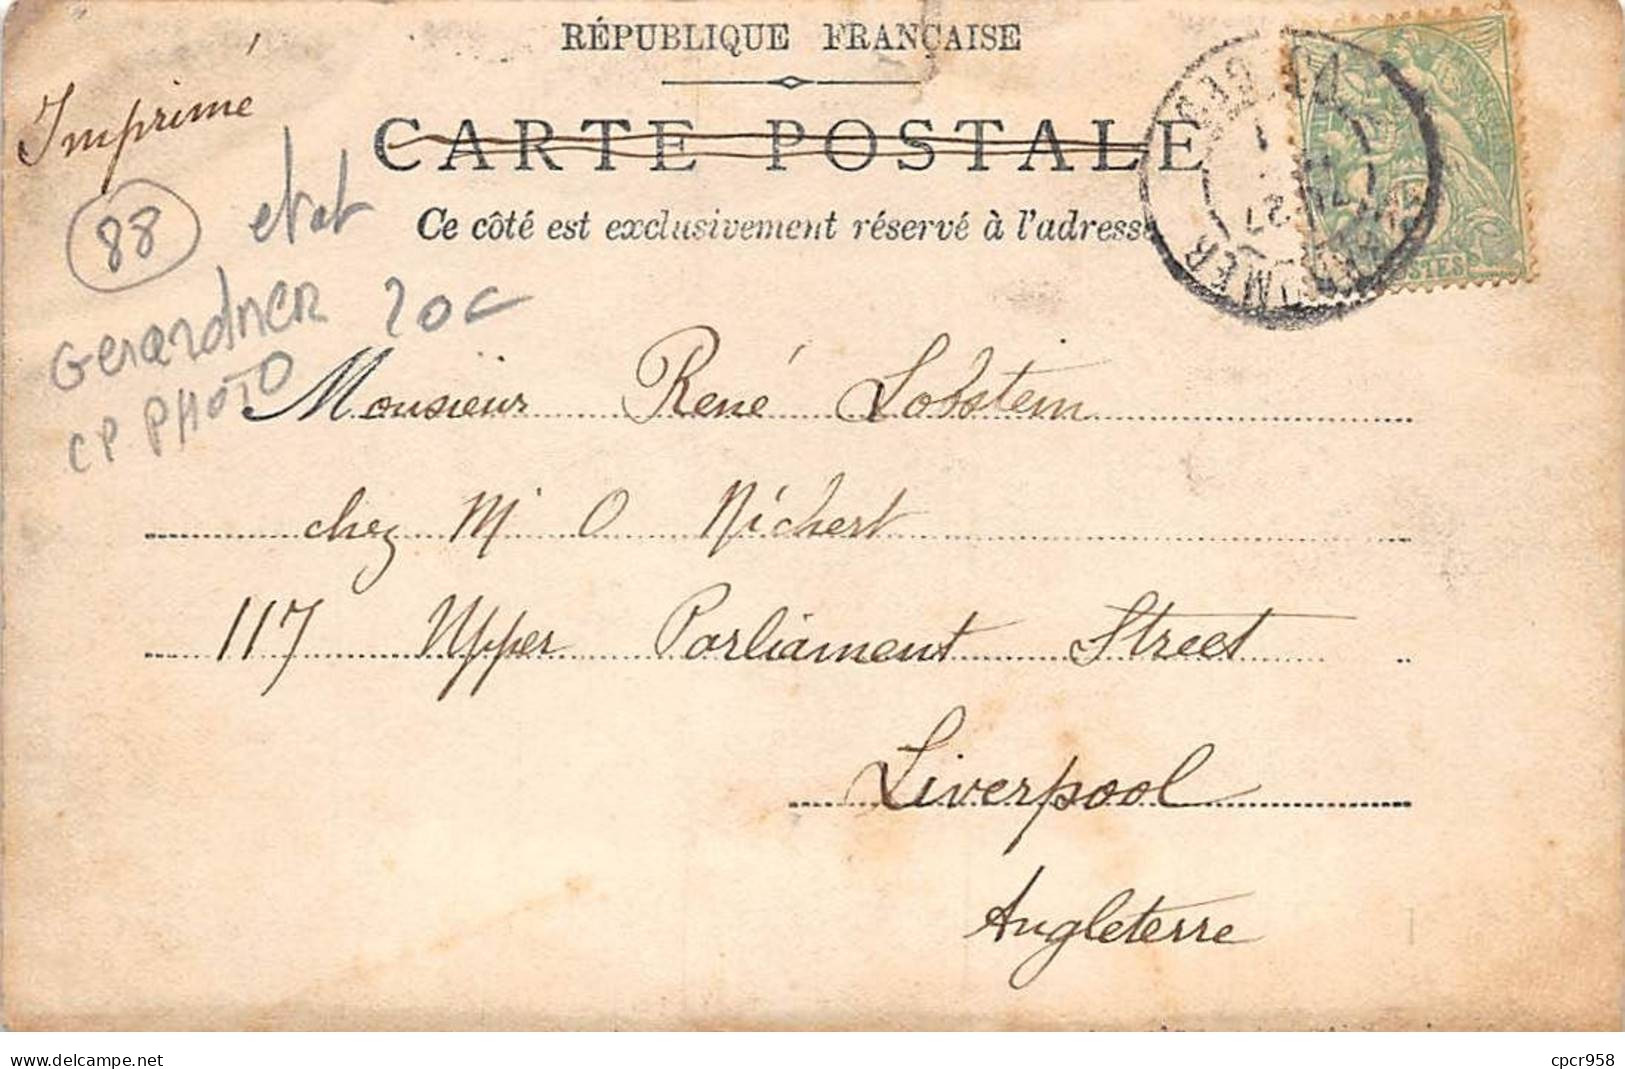 RÉPUBLIQUE FRANÇAISE
Imprimé
CARTE POSTALE
88 etat
Ce côté est exclusivement réservé à l'adresse
POSTES
Gerardmer 20c
CP PHOTO
Monsieur René Lobstein
chez M O Richert
117 Upper Parliament Street
Liverpool
Angleterre
www.delcampe.net
cpcr958